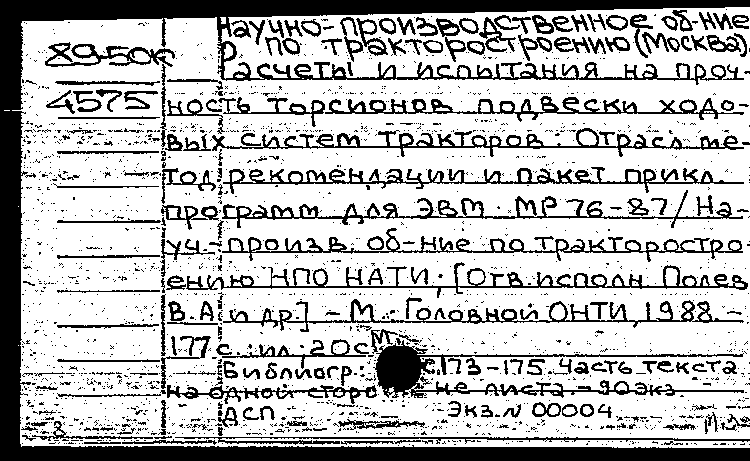 Научно-производственное об-ние
89-50к
р. по тракторостроению (Москва).
Расчеты и испытания на проч-
4575
ность торсионов подвески ходо-
вых систем тракторов: Отрасл ме-
тод рекомендации и пакет прикл.
программ для ЭВМ. МР 76-87/На-
уч.-произв. об-ние по тракторостро-
ению НПО НАТИ; [Отв. исполн Полев
В.А и др.] - М.: Головной ОНТИ, 1988. -
177 с.: ил; 20 см
Библиогр.: с.173-175. Часть текста
на одной сторо не листа. - 90 экз.
ДСП. Экз. N 00004